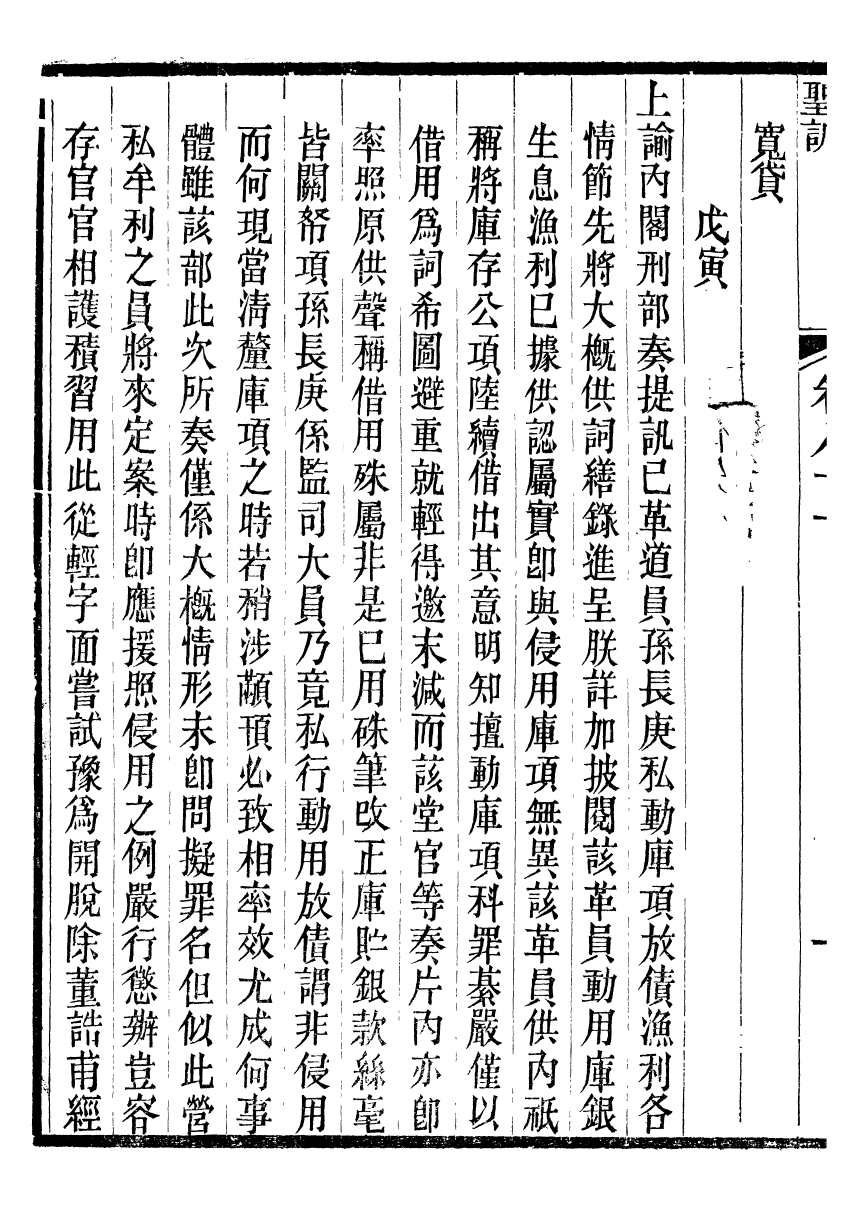 聖訓
卷八十一
一
寬貸
戊寅
上諭內閣刑部奏提訊已革道員孫長庚私動庫項放債漁利各
情節先將大槪供詞繕錄進呈朕詳加披閱該革員動用庫銀
生息漁利已據供認屬實卽與侵用庫項無異該革員供內祇
稱將庫存公項陸續借出其意明知擅動庫項科罪綦嚴僅以
借用爲詞希圖避重就輕得邀末減而該堂官等奏片內亦卽
率照原供聲稱借用殊屬非是已用硃筆改正庫貯銀款絲毫
皆關帑項孫長庚係監司大員乃竟私行動用放債謂非侵用
而何現當淸釐庫項之時若稍涉顢頇必致相率效尤成何事
體雖該部此次所奏僅係大槪情形未卽問擬罪名但似此營
私牟利之員將來定案時卽應援照侵用之例嚴行懲辦豈容
存官官相護積習用此從輕字面嘗試豫爲開脫除董誥甫經